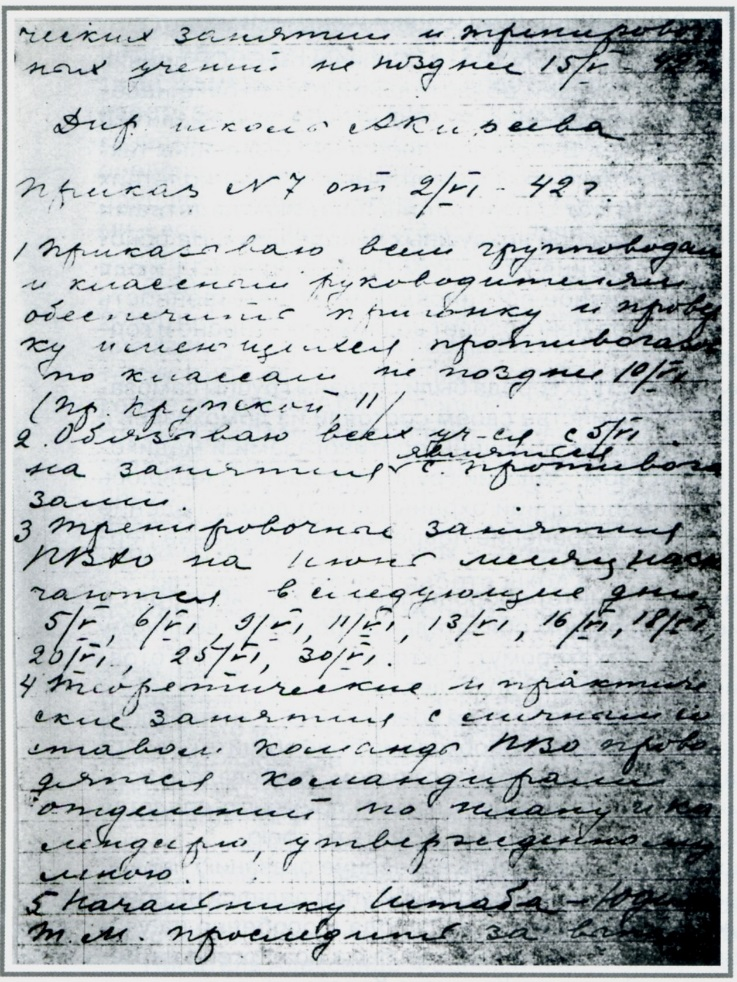 ческих занятий и трениров
ных учений не позднее 15/VI - 42г
Дир. школы АКиреева
Приказ N 7 от 2/VI - 42 г.
1 Приказываю всем групповодам
и классным руководителям
обеспечить и провер
ку имеющихся противогазов
по классам не позднее 10/VI
(пр. Крупской 11)
2. Обязываю всех уч-ся с 5/VI
являться
на занятия с противога
зами
3 Тренировочные занятия
ПВХО на июнь месяц назн
чаются в следующие дни
5/VI, 6/VI, 9/VI, 11/VI, 13/VI, 16/VI, 18/VI,
20/VI, 25/VI, 30/VI.
4 Теоретические и практиче
ские занятия с личным со
ставом команды ПВО прово
дятся командирами
отделений по плану и ка
лендарю, утвержденному
мною.
5 Начальнику Штаба -
Т. М. проследить за